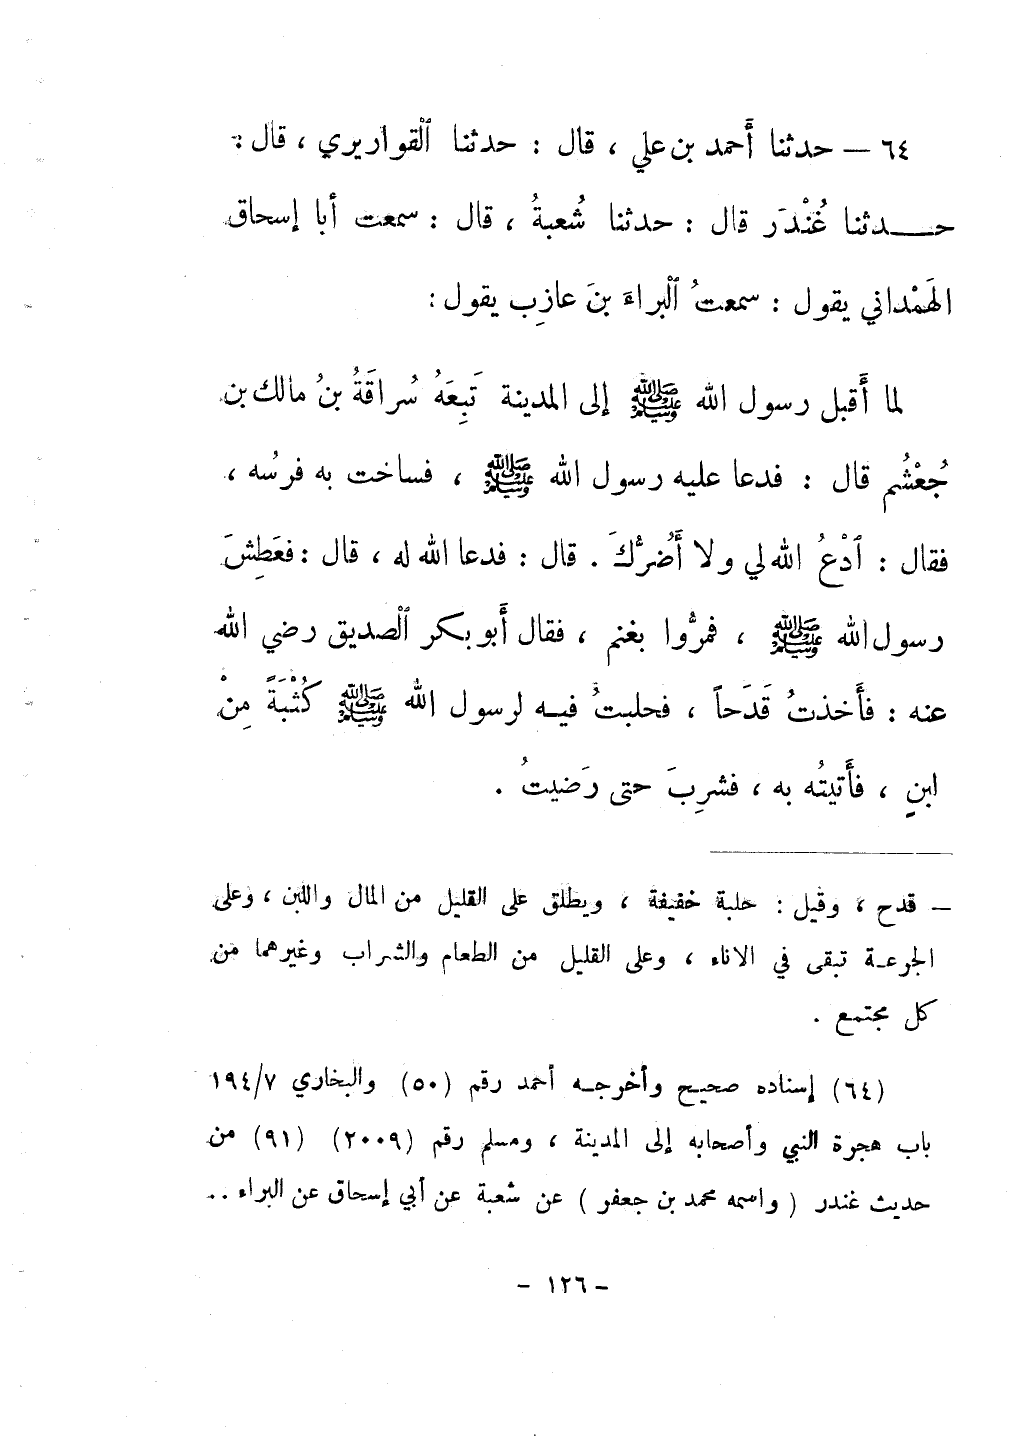 ٦٤ — حدثنا أَحمد بن علي ، قال : حدثنا ٱلقواريري ، قال :
حـــدثنا غُنْدَر قال : حدثنا شُعبةُ ، قال : سمعت أبا إسحاق
الهَمْداني يقول : سمعتُ ٱلبراءَ بنَ عازِب يقول :
لما أَقبل رسول الله ﷺ إلى المدينة تَبِعَهُ سُراقَةُ بنُ مالك بن
جُعْشُم قال : فدعا عليه رسول الله ﷺ ، فساخت به فرسُه ،
فقال : ٱدْعُ الله لي ولا أَضُرُّكَ . قال : فدعا الله له ، قال : فعَطِشَ
رسول الله ﷺ ، فمرُّوا بغنم ، فقال أَبو بكر ٱلصديق رضي الله
عنه : فأَخذتُ قَدَحاً ، فحلبتُ فيه لرسول الله ﷺ كُثْبَةً مِنْ
لبنٍ ، فأَتيتُه به ، فشرِبَ حتى رَضيتُ .
— قدح ، وقيل : حلبة خفيفة ، ويطلق على القليل من المال واللبن ، وعلى
الجرعة تبقى في الاناء ، وعلى القليل من الطعام والشراب وغيرهما من
كل مجتمع .
(٦٤) إسناده صحيح وأخرجه أحمد رقم (٥٠) والبخاري ١٩٤/٧
باب هجرة النبي وأصحابه إلى المدينة ، ومسلم رقم (٢٠٠٩) (٩١) من
حديث غندر ( واسمه محمد بن جعفر ) عن شعبة عن أبي إسحاق عن البراء ..
– ١٢٦ –